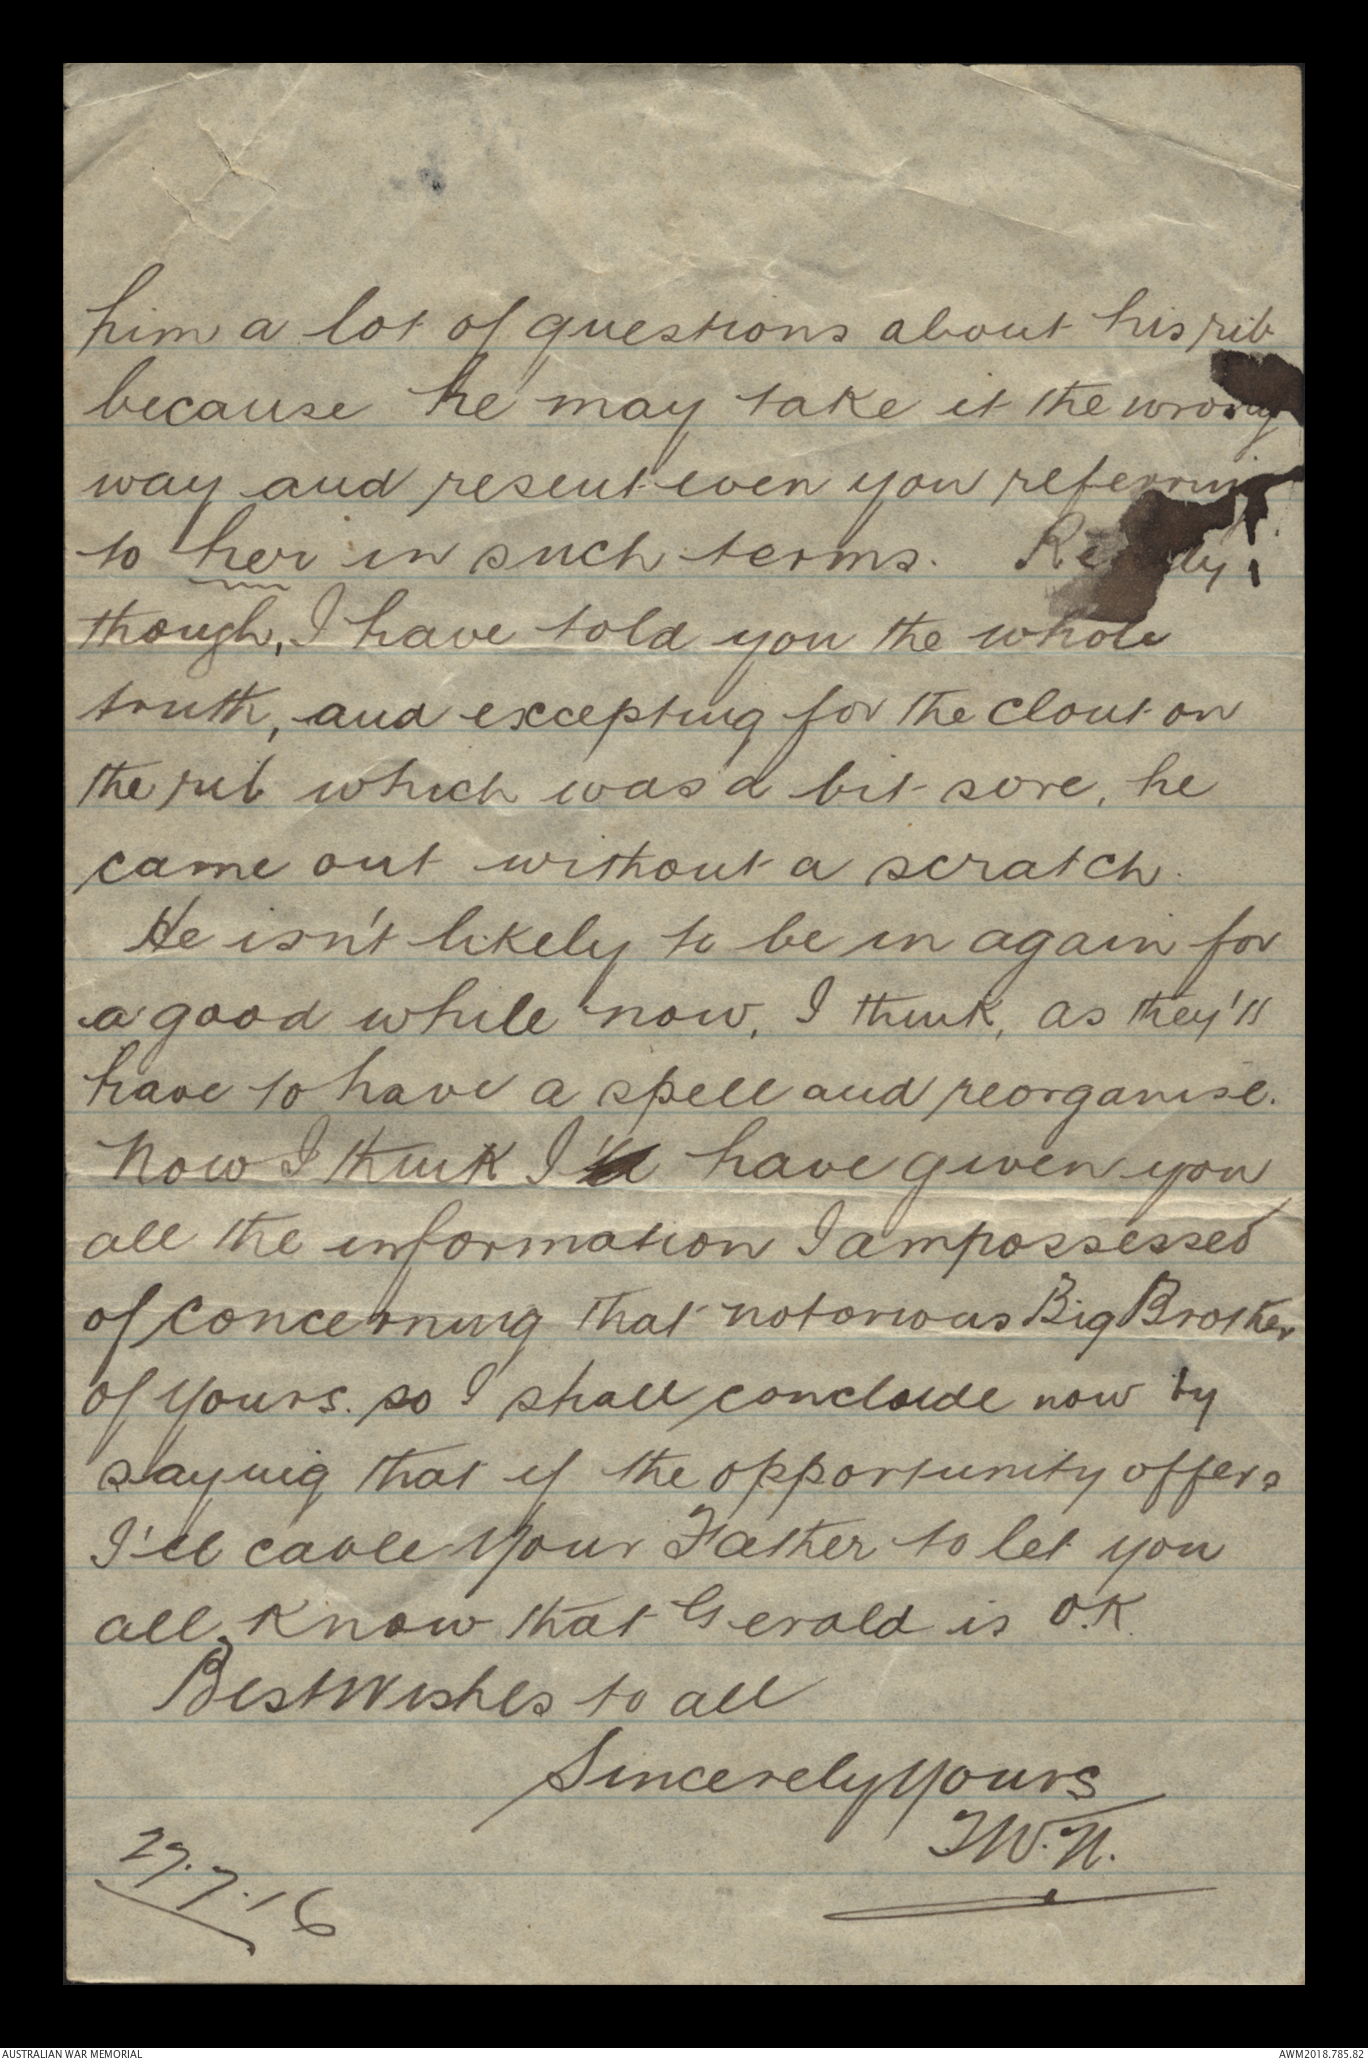 him a lot of questions about his rib
because he may take it the wrong
way and resent even you referring
to her in such terms.
though, I have told you the whole
truth, and excepting for the clout on
the rib which was a bit sore, he
came out without a scratch.
He isn't likely to be in again for
a good while now, I think, as they'll
have to have a spell and reorganise.
Now I think I have given you
all the information I am possessed
of concerning that notorious Big Brother
of yours. so I shall conclude now by
saying that if the opportunity offers
I'll cable your Father to let you
all know that Gerald is O.K.
Best Wishes to all
Sincerely Yours
27.7.16
AUSTRALIAN WAR MEMORIAL
AWM2018.785.82